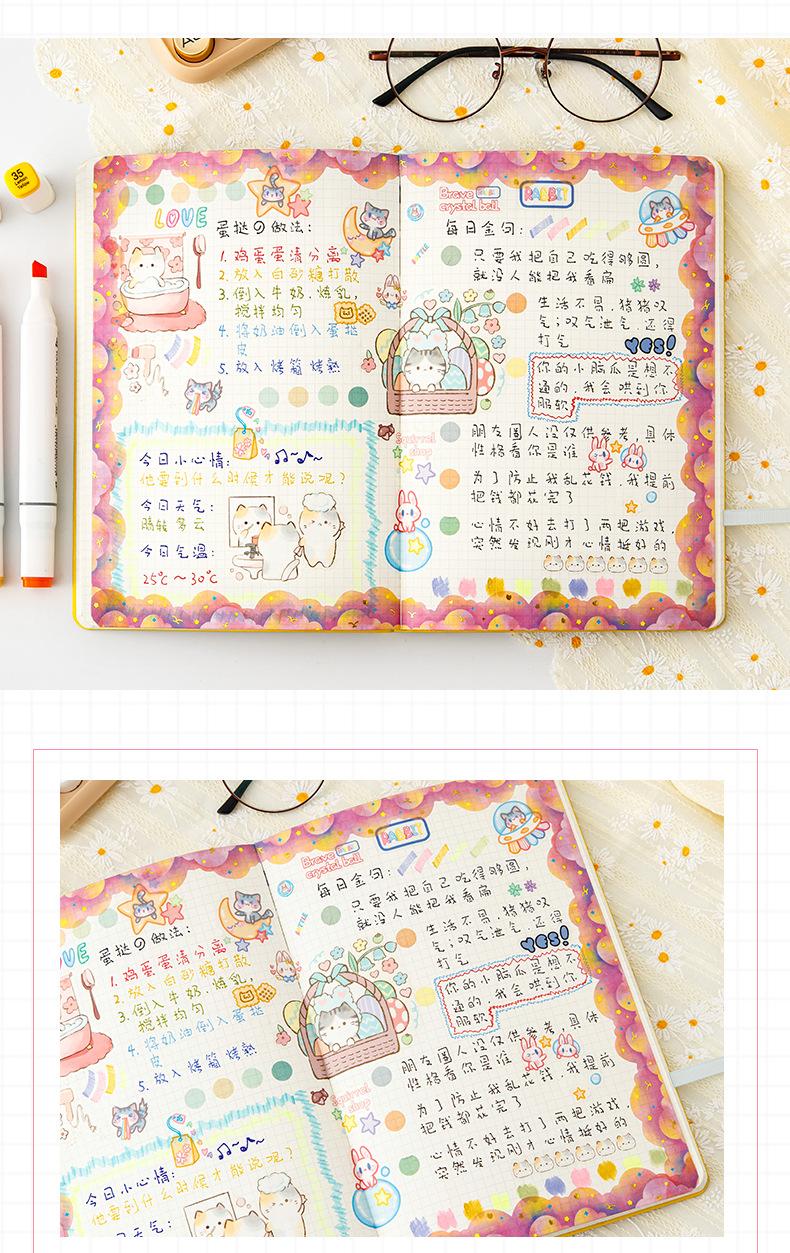 35
Lemon
Yellow
LOVE
蛋挞の做法:
1. 鸡蛋蛋清分离
2. 放入白砂糖打散
3. 倒入牛奶.炼乳,
搅拌均匀
4. 将奶油倒入蛋挞
皮
5. 放入烤箱烤熟
今日小心情:
他要到什么时候才能说呢?
今日天气:
晴转多云
今日气温:
25℃~30℃
Brave
crystal ball
RABBIT
每日金句:
只要我把自己吃得够圆,
就没人能把我看扁
生活不易,猪猪叹
气;叹气泄气,还得
打气
yes!
你的小脑瓜是想不
通的,我会哄到你
服软
Squirrel
shop
朋友圈人设仅供参考,具体
性格看你是谁
为了防止我乱花钱,我提前
把钱都花完了
心情不好去打了两把游戏,
突然发现刚才心情挺好的
OVE
蛋挞の做法:
1. 鸡蛋蛋清分离
2. 放入白砂糖打散
3. 倒入牛奶.炼乳,
搅拌均匀
4. 将奶油倒入蛋挞
皮
5. 放入烤箱烤熟
今日小心情:
他要到什么时候才能说呢?
天气:
Brave
crystal ball
RABBIT
每日金句:
只要我把自己吃得够圆,
就没人能把我看扁
生活不易,猪猪叹
气;叹气泄气,还得
打气
yes!
你的小脑瓜是想不
通的,我会哄到你
服软
Squirrel
shop
朋友圈人设仅供参考,具体
性格看你是谁
为了防止我乱花钱,我提前
把钱都花完了
心情不好去打了两把游戏,
突然发现刚才心情挺好的